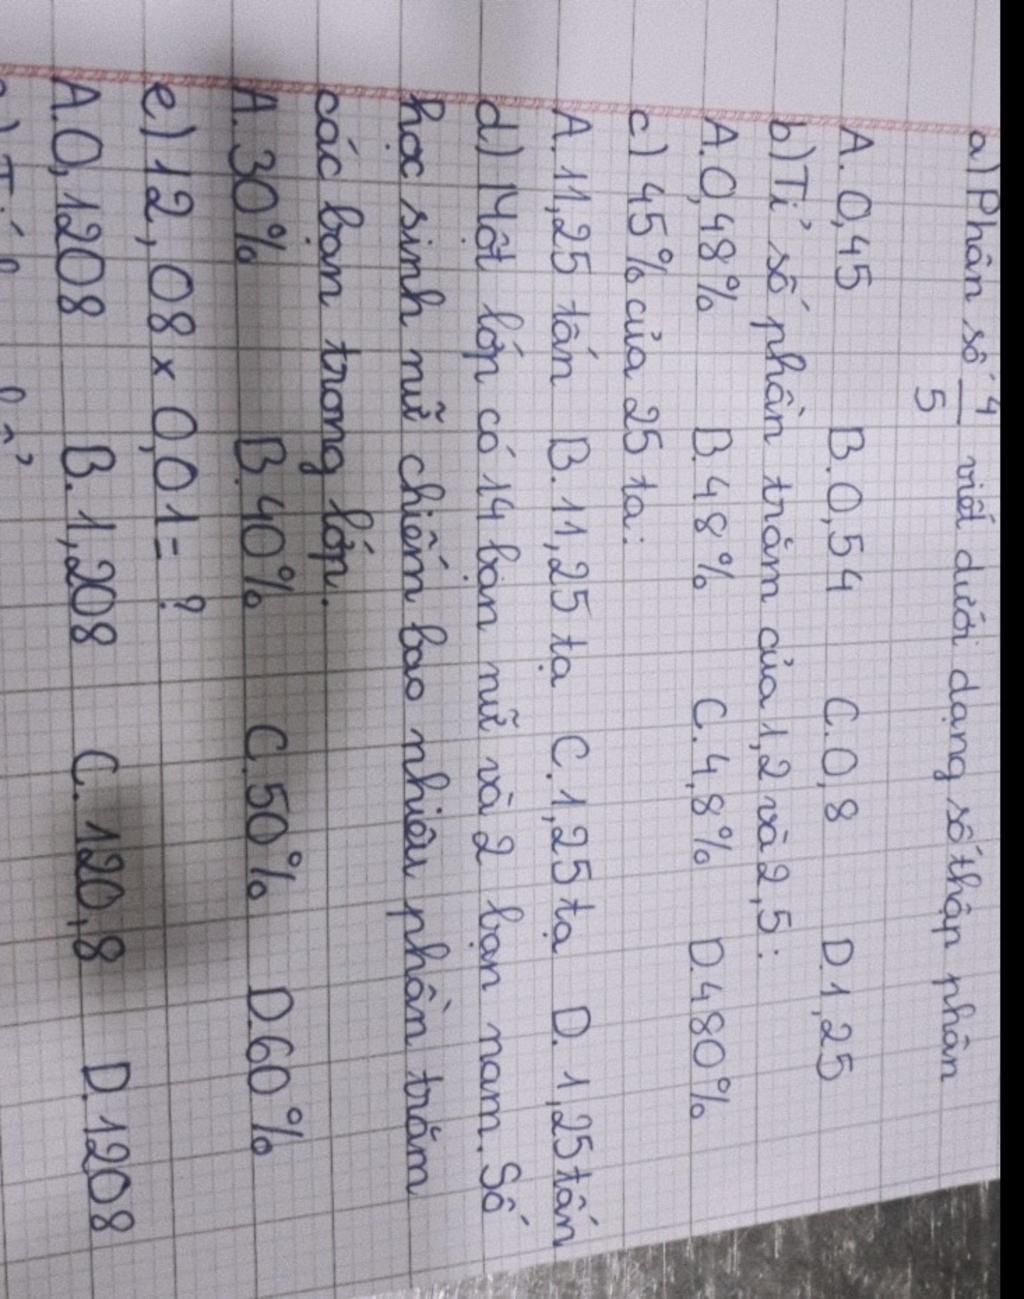 a) Phân số 4/5 viết dưới dạng số thập phân
A. 0,45 B. 0,54 C. 0,8 D. 1,25
b) Tỉ số phần trăm của 1,2 và 2,5:
A. 0,48% B. 48% C. 4,8% D. 480%
c) 45% của 25 tạ:
A. 11,25 tấn B. 11,25 tạ C. 1,25 tạ D. 1,25 tấn
d) Một lớp có 14 bạn nữ và 2 bạn nam. Số
học sinh nữ chiếm bao nhiêu phần trăm
các bạn trong lớp.
A. 30% B. 40% C. 50% D. 60%
e) 12,08 x 0,01 = ?
A. 0,1208 B. 1,208 C. 120,8 D. 1208